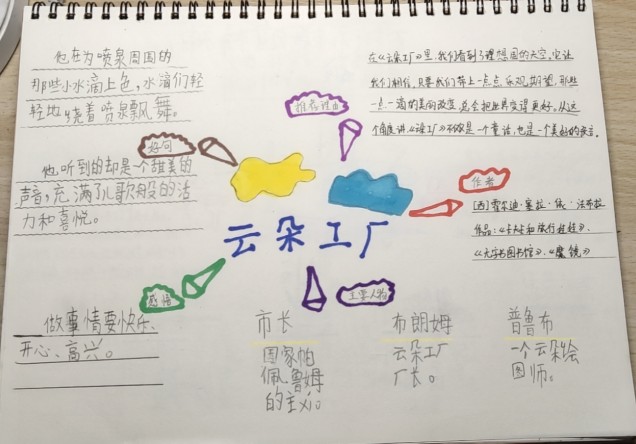 他在为喷泉周围的
那些小水滴上色,水滴们轻
轻地绕着喷泉飘舞。
好句
他听到的却是个甜美的
声音,充满了儿歌般的活
力和喜悦。
推荐理由
在《云朵工厂》里,我们看到了理想国的天空,它让
我们相信,只要我们带上一点点乐观期望,那些
一点一滴的美向改变,总会把世界变得更好。从这
个角度讲,《云工厂》不仅是一个童话,也是一个美好的寓言。
作者
[西]费尔迪·塞拉·依·法布拉
作品:《卡夫卡和旅行娃娃》、
《文字书图书馆》、《魔镜》
云朵工厂
感悟
做事情要快乐、
开心、高兴。
主要人物
市长
国家帕
佩鲁姆
的主
布朗姆
云朵工厂
厂长。
普鲁布
一个云朵绘
图师。